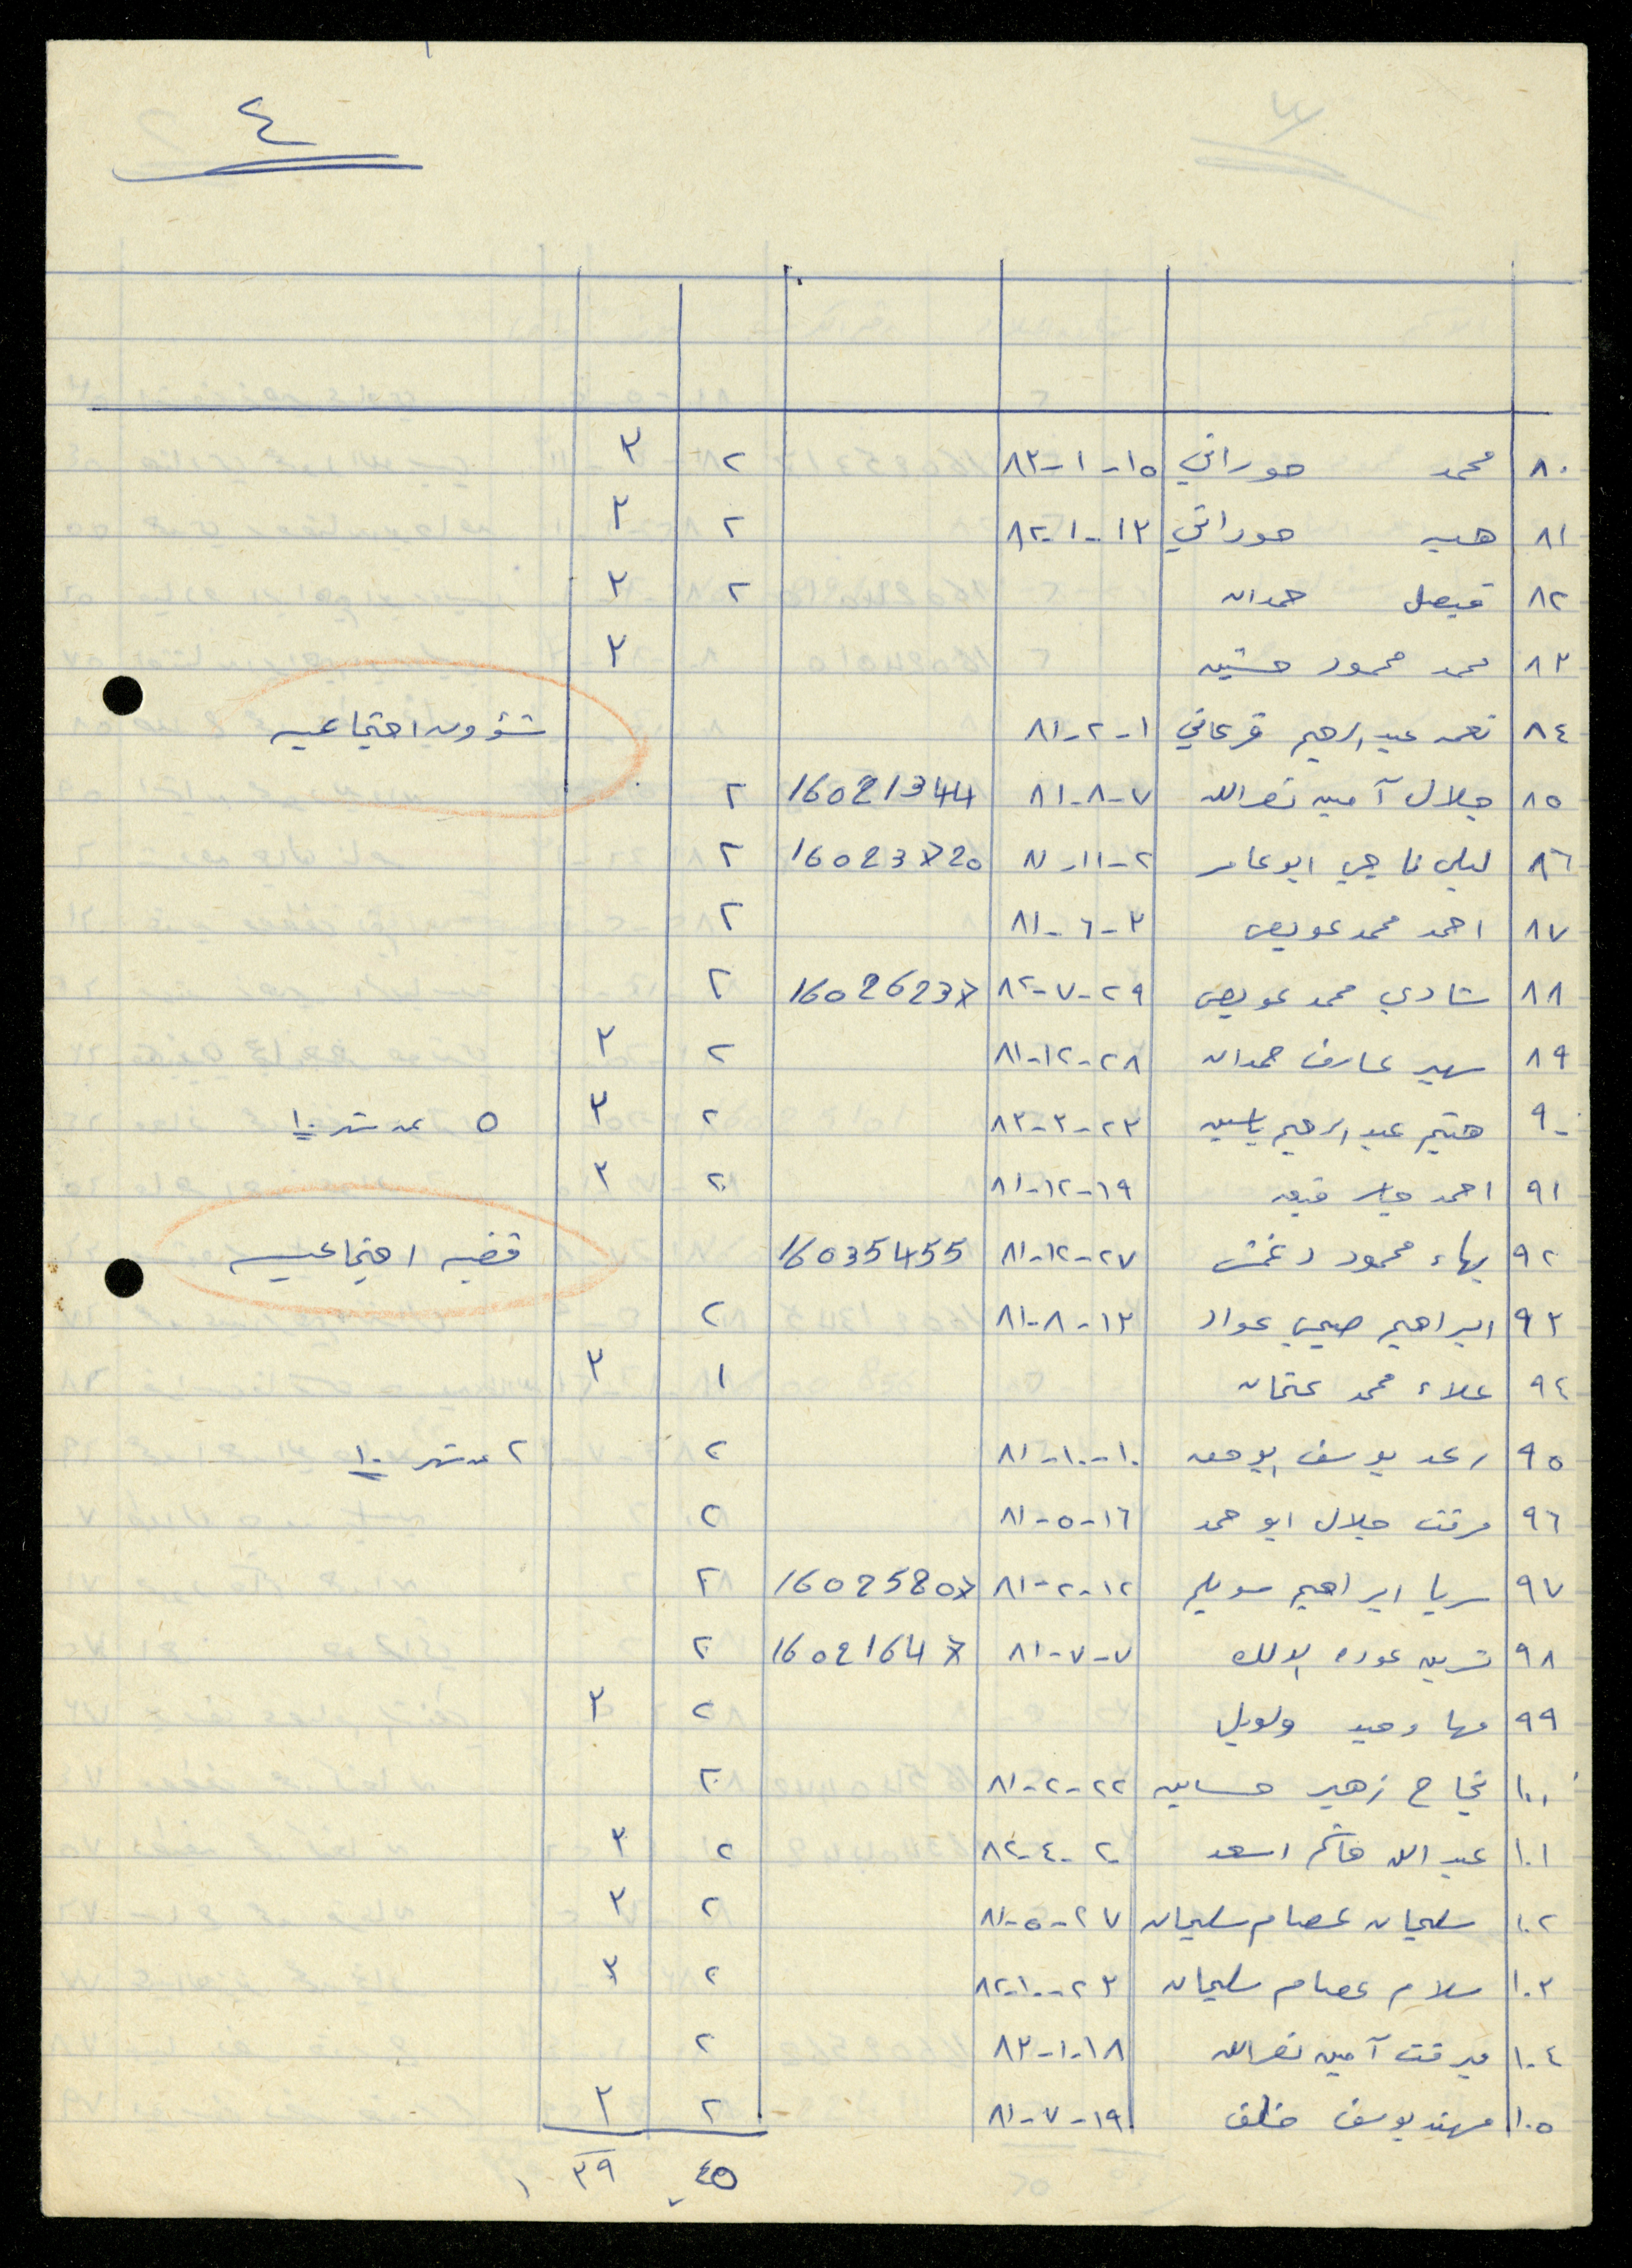 ٤
٨٠ محمد حوراني ١٥-١-٨٣ ٢ ٣
٨١ هبه حوراني ١٣-١-٨٢ ٢ ٣
٨٢ فيصل حمدان ٢ ٣
٨٣ محمد محمود حسنين ٣
٨٤ نعمه عبد الرحيم قرعاني ١-٢-٨١ شؤون اجتماعيه
٨٥ جلال آمين نصرالله ٧-٨-٨١ 16021344 ٢
٨٦ ليلى ناجي ابو عامر ٢-١١-٨١ 16023720 ٢
٨٧ احمد محمد عويص ٣-٦-٨١ ٢
٨٨ شادي محمد عويص ٢٩-٧-٨٢ 16026237 ٢
٨٩ سهير عارف حمدان ٢٨-١٢-٨١ ٢ ٣
٩٠ هيثم عبد الرحيم ياسين ٢٣-٣-٨٣ ٢ ٣ ٥ عن شهر ١٠
٩١ احمد جابر ١٩-١٢-٨١ ٢ ٣
٩٢ بهاء محمود دغمش ٢٧-١٢-٨١ 16035455 قضيه اجتماعيه
٩٣ ابراهيم صبحي عواد ١٣-٨-٨١ ٢
٩٤ علاء محمد عثمان ١ ٣
٩٥ رعد يوسف ١٠-١٠-٨١ ٢ ٢ عن شهر ١٠
٩٦ مرفت جلال ابو حمد ١٦-٥-٨١ ٢
٩٧ سريا ابراهيم سويلم ١٢-٢-٨١ 16025207 ٢
٩٨ نسرين عوده ٧-٧-٨١ 16021647 ٢
٩٩ مها وحيد ٢ ٣
١٠٠ نجاح زهير حساين ٢٢-٢-٨١ ٢
١٠١ عبد الله هاشم اسعد ٢٠-٤-٨٢ ٢ ٣
١٠٢ سليمان عصام سليمان ٢٧-٥-٨١ ٢ ٣
١٠٣ سلام عصام سليمان ٢٣-١٠-٨٢ ٢ ٣
١٠٤ ميرفت آمين نصرالله ١٨-١-٨٣ ٢
١٠٥ مهند يوسف خلف ١٩-٧-٨١ ٢ ٣
٤٥ ٣٩